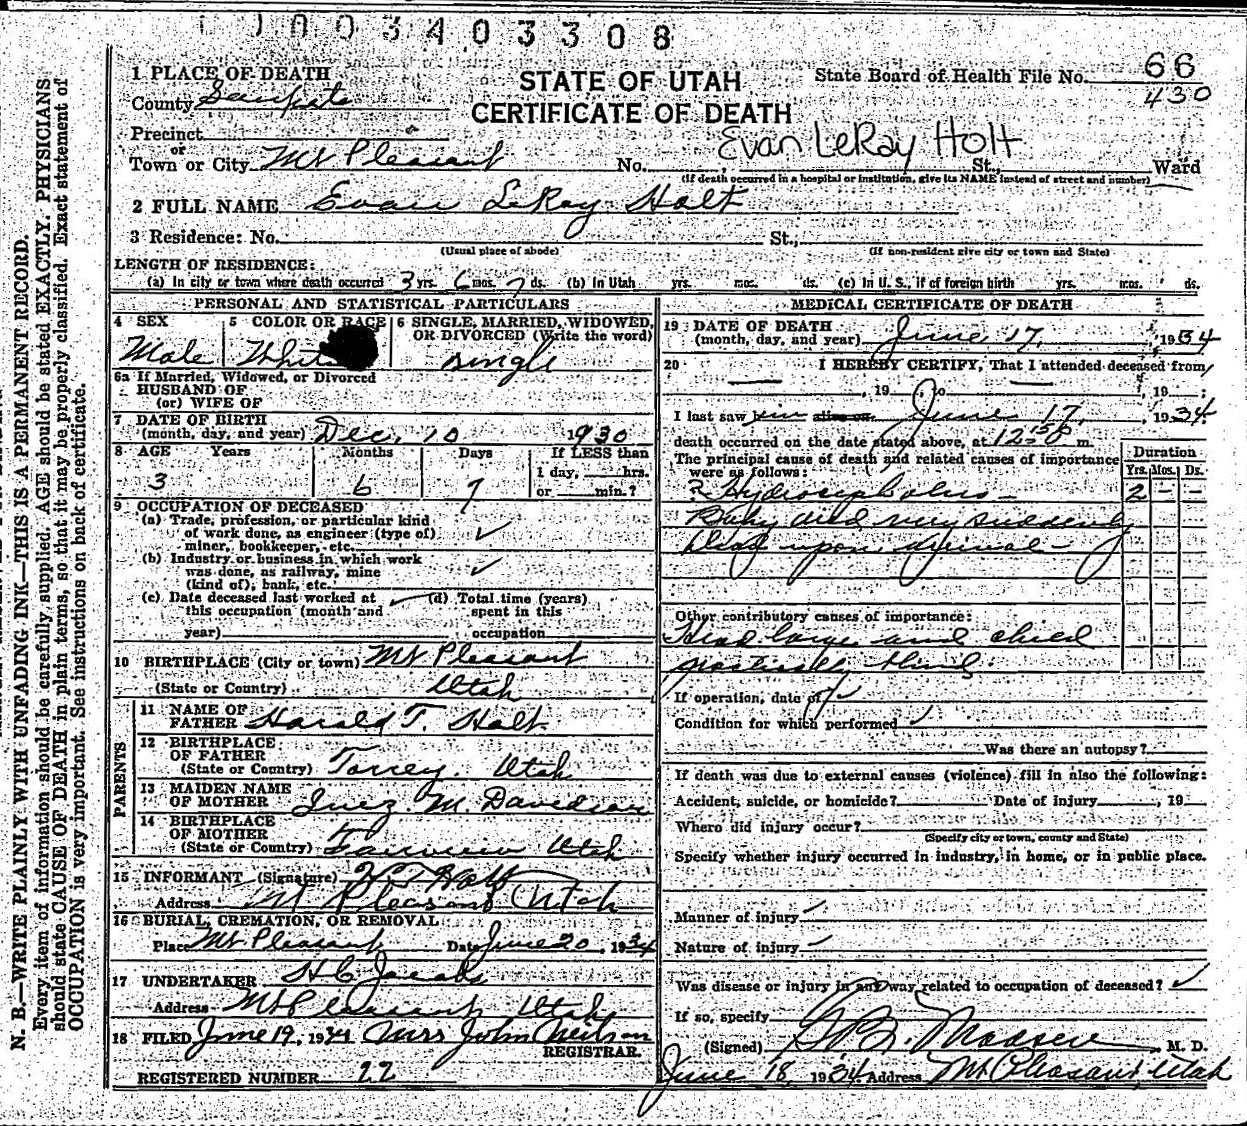 1003403308
STATE OF UTAH
CERTIFICATE OF DEATH
State Board of Health File No. 66
430
1 PLACE OF DEATH
County Sanpete
Precinct
or
Town or City Mt Pleasant No. Evan LeRay Holt St., Ward
(If death occurred in a hospital or institution, give its NAME instead of street and number)
2 FULL NAME Evan LeRay Holt
3 Residence: No. St.,
(Usual place of abode) (If non-resident give city or town and State)
LENGTH OF RESIDENCE:
(a) In city or town where death occurred 3 yrs. 6 mos. 7 ds. (b) In Utah yrs. mos. ds. (c) In U. S., if of foreign birth yrs. mos. ds.
PERSONAL AND STATISTICAL PARTICULARS
4 SEX 5 COLOR OR RACE 6 SINGLE, MARRIED, WIDOWED, OR DIVORCED (Write the word)
Male White single
6a If Married, Widowed, or Divorced
HUSBAND OF
(or) WIFE OF
7 DATE OF BIRTH
(month, day, and year) Dec. 10 1930
8 AGE Years Months Days If LESS than
1 day, hrs.
3 6 7 or min.?
9 OCCUPATION OF DECEASED
(a) Trade, profession, or particular kind
of work done, as engineer (type of)
miner, bookkeeper, etc. ✓
(b) Industry or business in which work
was done, as railway, mine
(kind of), bank, etc. ✓
(c) Date deceased last worked at ✓ (d) Total time (years)
this occupation (month and spent in this
year) occupation
10 BIRTHPLACE (City or town) Mt Pleasant
(State or Country) Utah
PARENTS
11 NAME OF
FATHER Harold T. Holt
12 BIRTHPLACE
OF FATHER
(State or Country) Torrey. Utah
13 MAIDEN NAME
OF MOTHER Inez M. Davidson
14 BIRTHPLACE
OF MOTHER
(State or Country) Fairview Utah
15 INFORMANT (Signature) Holt
Address Mt Pleasant Utah
16 BURIAL, CREMATION, OR REMOVAL
Place Mt Pleasant Date June 20, 1934
17 UNDERTAKER H C Jacobs
Address Mt Pleasant Utah
18 FILED June 19, 1934 Mrs John Neilson
REGISTRAR.
REGISTERED NUMBER 22
MEDICAL CERTIFICATE OF DEATH
19 DATE OF DEATH
(month, day, and year) June 17, 1934
20 I HEREBY CERTIFY, That I attended deceased from
, 19 , to , 19 ;
I last saw him alive on June 17, 1934
death occurred on the date stated above, at 12 50 m.
The principal cause of death and related causes of importance
were as follows:
Duration
Yrs. Mos. Ds.
? Hydrocephalus - 2 - -
Baby died very suddenly
dead upon arrival -
Other contributory causes of importance:
Head large and child
practically blind.
If operation, date of ✓
Condition for which performed ✓
Was there an autopsy?
If death was due to external causes (violence) fill in also the following:
Accident, suicide, or homicide? Date of injury , 19
Where did injury occur?
(Specify city or town, county and State)
Specify whether injury occurred in industry, in home, or in public place.
Manner of injury ✓
Nature of injury ✓
Was disease or injury in any way related to occupation of deceased? ✓
If so, specify
(Signed) Madsen M. D.
June 18, 1934 Address Mt Pleasant, Utah
N. B.—WRITE PLAINLY WITH UNFADING INK—THIS IS A PERMANENT RECORD.
Every item of information should be carefully supplied. AGE should be stated EXACTLY. PHYSICIANS
should state CAUSE OF DEATH in plain terms, so that it may be properly classified. Exact statement of
OCCUPATION is very important. See instructions on back of certificate.